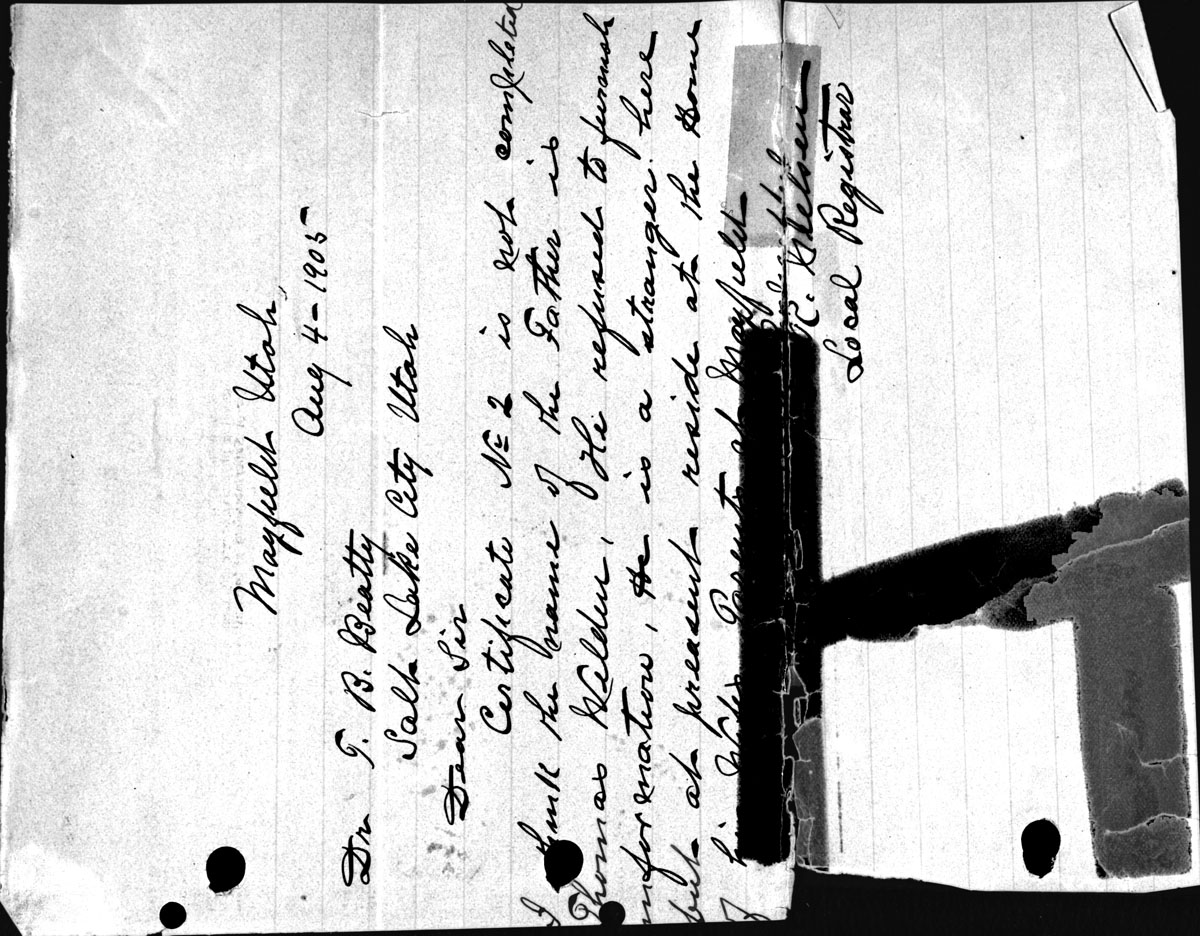 Mayfield Utah,
Aug 4-1905
Dr T. B. Beatty
Salt Lake City Utah
Dear Sir
Certificate No 2 is not completed
I think the name of the Father is
Thomas Welden, He refused to furnish
information, He is a stranger here
but at preasent reside at the Home
of his Wifes Parents at Mayfield
C. Nielsen
Local Registrar